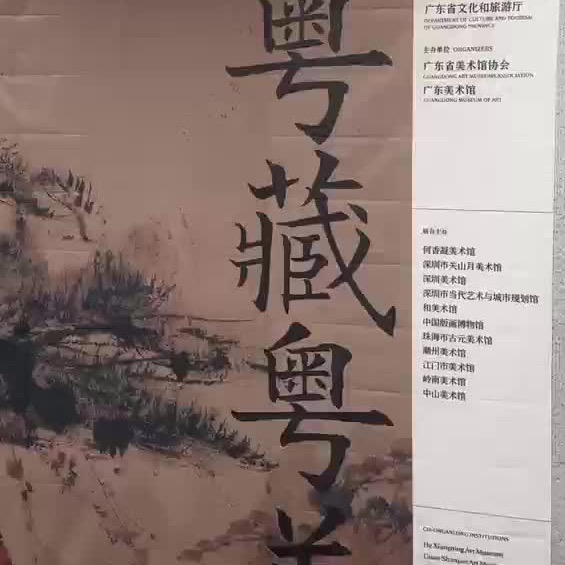 粤藏粤美
广东省文化和旅游厅
DEPARTMENT OF CULTURE AND TOURISM
OF GUANGDONG PROVINCE
主办单位 ORGANIZERS
广东省美术馆协会
GUANGDONG ART MUSEUMS ASSOCIATION
广东美术馆
GUANGDONG MUSEUM OF ART
何香凝美术馆
深圳市关山月美术馆
深圳美术馆
深圳市当代艺术与城市规划馆
和美术馆
中国版画博物馆
珠海市古元美术馆
潮州美术馆
江门市美术馆
岭南美术馆
中山美术馆
CO-ORGANIZING INSTITUTIONS
He Xiangning Art Museum
Guan Shanyue Art Museum